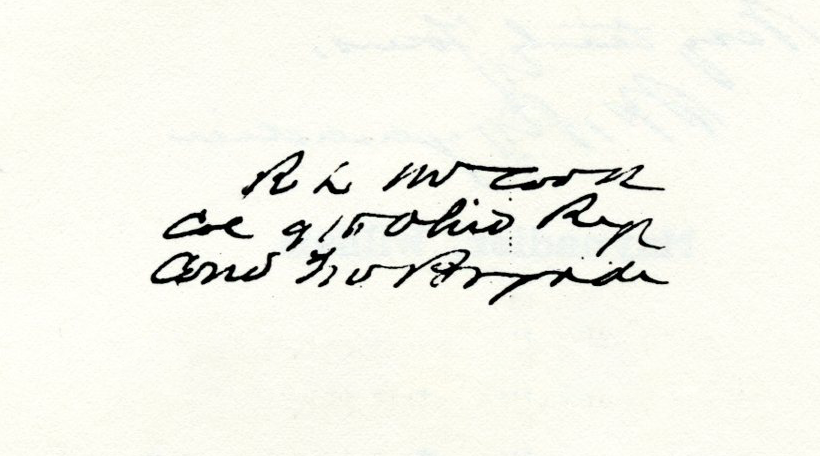 R L McCook
Col 9th Ohio Regt
Comd Brigade